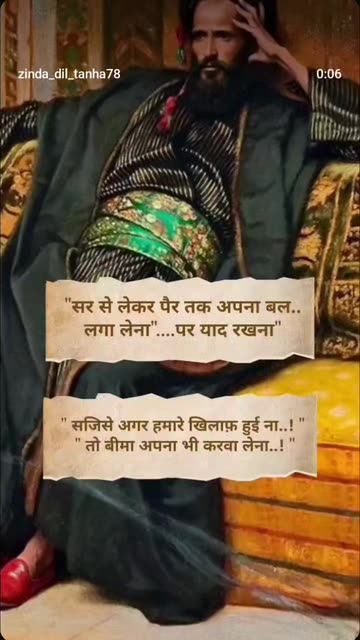 zinda_dil_tanha78
0:06
"सर से लेकर पैर तक अपना बल..
लगा लेना"....पर याद रखना"
" सजिसे अगर हमारे खिलाफ़ हुई ना..! "
" तो बीमा अपना भी करवा लेना..! "